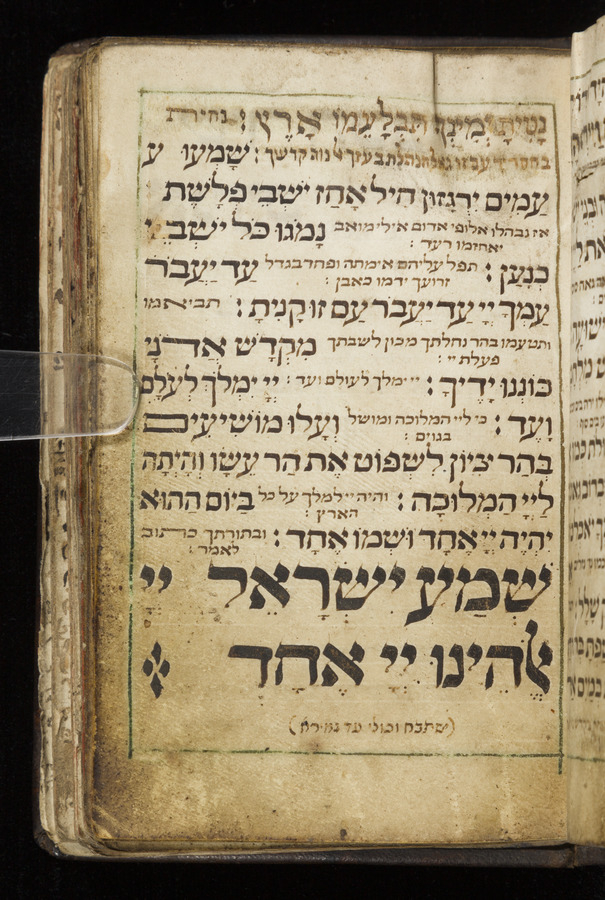 נָטִיתָ יְמִינְךָ תִּבְלָעֵמוֹ אָרֶץ : נחית
בחסדך עם זו גאלת נהלת בעזך אל נוה קדשך : שָׁמְעוּ ע
עַמִּים יִרְגָּזוּן חִיל אָחַז יֹשְׁבֵי פְּלָשֶׁת
אז נבהלו אלופי אדום אילי מואב נָמֹגוּ כֹּל יֹשְׁבֵי
יאחזמו רעד :
כְנָעַן : תפל עליהם אימתה ופחד בגדל עַד יַעֲבֹר
זרועך ידמו כאבן :
עַמְּךָ יְיָ עַד יַעֲבֹר עַם זוּ קָנִיתָ : תביאמו
ותטעמו בהר נחלתך מכון לשבתך מִקְּדָשׁ אֲדֹנָי
פעלת יי :
כּוֹנְנוּ יָדֶיךָ : יי ימלך לעולם ועד : יְיָ יִמְלֹךְ לְעֹלָם
וָעֶד : כי ליי המלוכה ומושל וְעָלוּ מוֹשִׁיעִים
בגוים :
בְּהַר צִיּוֹן לִשְׁפּוֹט אֶת הַר עֵשָׂו וְהָיְתָה
לַיְיָ הַמְּלוּכָה : והיה יי למלך על כל בַּיּוֹם הַהוּא
הארץ :
יִהְיֶה יְיָ אֶחָד וּשְׁמוֹ אֶחָד : ובתורתך כתוב
לאמר :
שְׁמַע יִשְׂרָאֵל יְיָ
אֱלֹהֵינוּ יְיָ אֶחָד
(ישתבח וכולי עד גמירא)